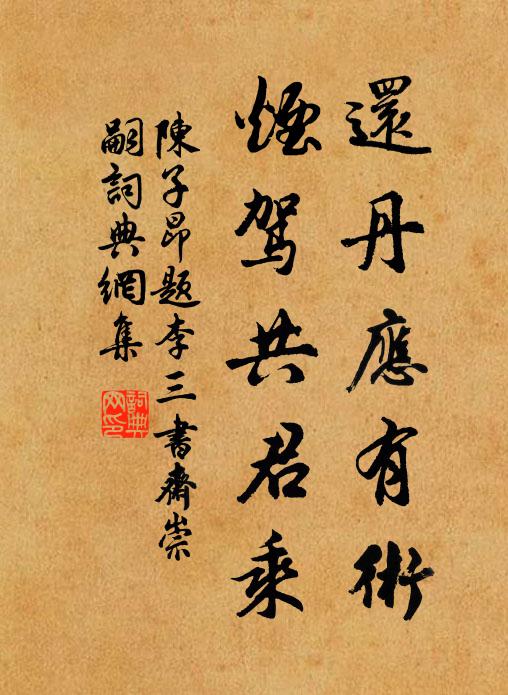 還丹應有術
煙駕共君乘
陳子昂題李三書齋崇
嗣詞典網集
詞典
网印